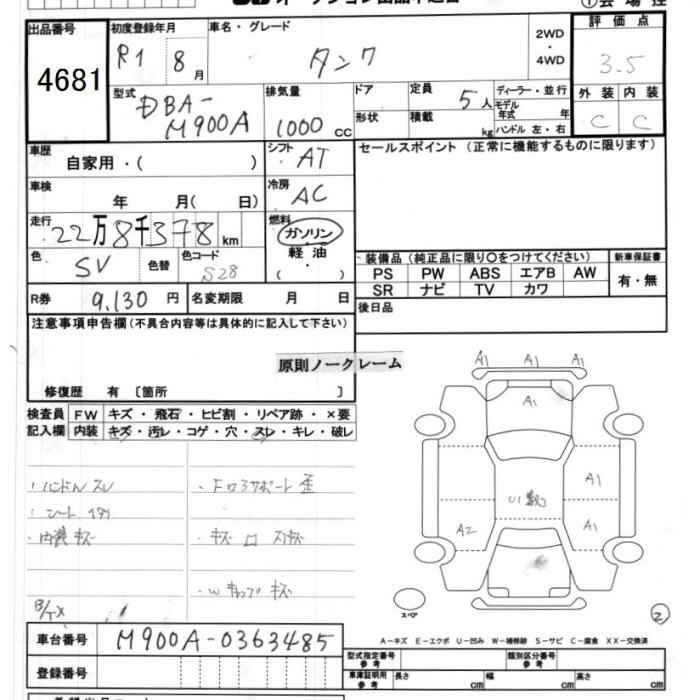 出品番号
4681
初度登録年月
R1 8月
車名・グレード
タンク
2WD
・
4WD
評価点
3.5
外装 内装
C C
型式
DBA-
M900A
排気量
1000 CC
ドア
形状
定員
5人
積載
kg
ディーラー・並行
モデル
年式 年
ハンドル 左・右
車歴
自家用・( )
シフト
AT
セールスポイント (正常に機能するものに限ります)
車検
年 月( 日)
冷房
AC
走行
22万8千378km
燃料
ガソリン
軽油
( )
色
SV
色替
色コード
S28
装備品 (純正品に限り〇をつけてください)
新車保証書
PS PW ABS エアB AW
有・無
SR ナビ TV カワ
R券 9,130 円
名変期限 月 日
後日品
注意事項申告欄(不具合内容等は具体的に記入して下さい)
原則ノークレーム
修復歴 有 〔箇所 〕
検査員
記入欄
FW キズ・飛石・ヒビ割・リペア跡・×要
内装 キズ・汚レ・コゲ・穴・スレ・キレ・破レ
・ハンドルスレ
・シート
・内装キズ
・Fロアサポート歪
・キズ
キズ
A1 A1 A1
A1
A1
A1
A2
U1
スペア
2
A-キズ E-エクボ U-凹み W-補修跡 S-サビ C-腐食 XX-交換済
車台番号
M900A-0363485
登録番号
型式指定番号
参考
類別区分番号
参考
車庫証明用
参考
長さ cm
幅 cm
高さ cm